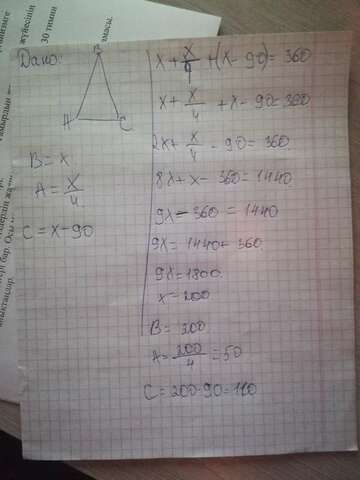 Дано:
B
A
C
B = x
A = x/4
C = x - 90
x + x/4 + (x - 90) = 360
x + x/4 + x - 90 = 360
2x + x/4 - 90 = 360
8x + x - 360 = 1440
9x - 360 = 1440
9x = 1440 + 360
9x = 1800
x = 200
B = 200
A = 200/4 = 50
C = 200 - 90 = 110
30 тимин
жүйесінін